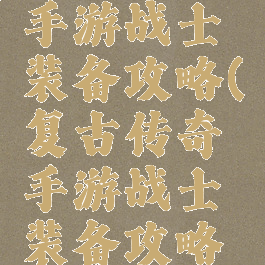 手游战士
装备攻略(
复古传奇
手游战士
装备攻略